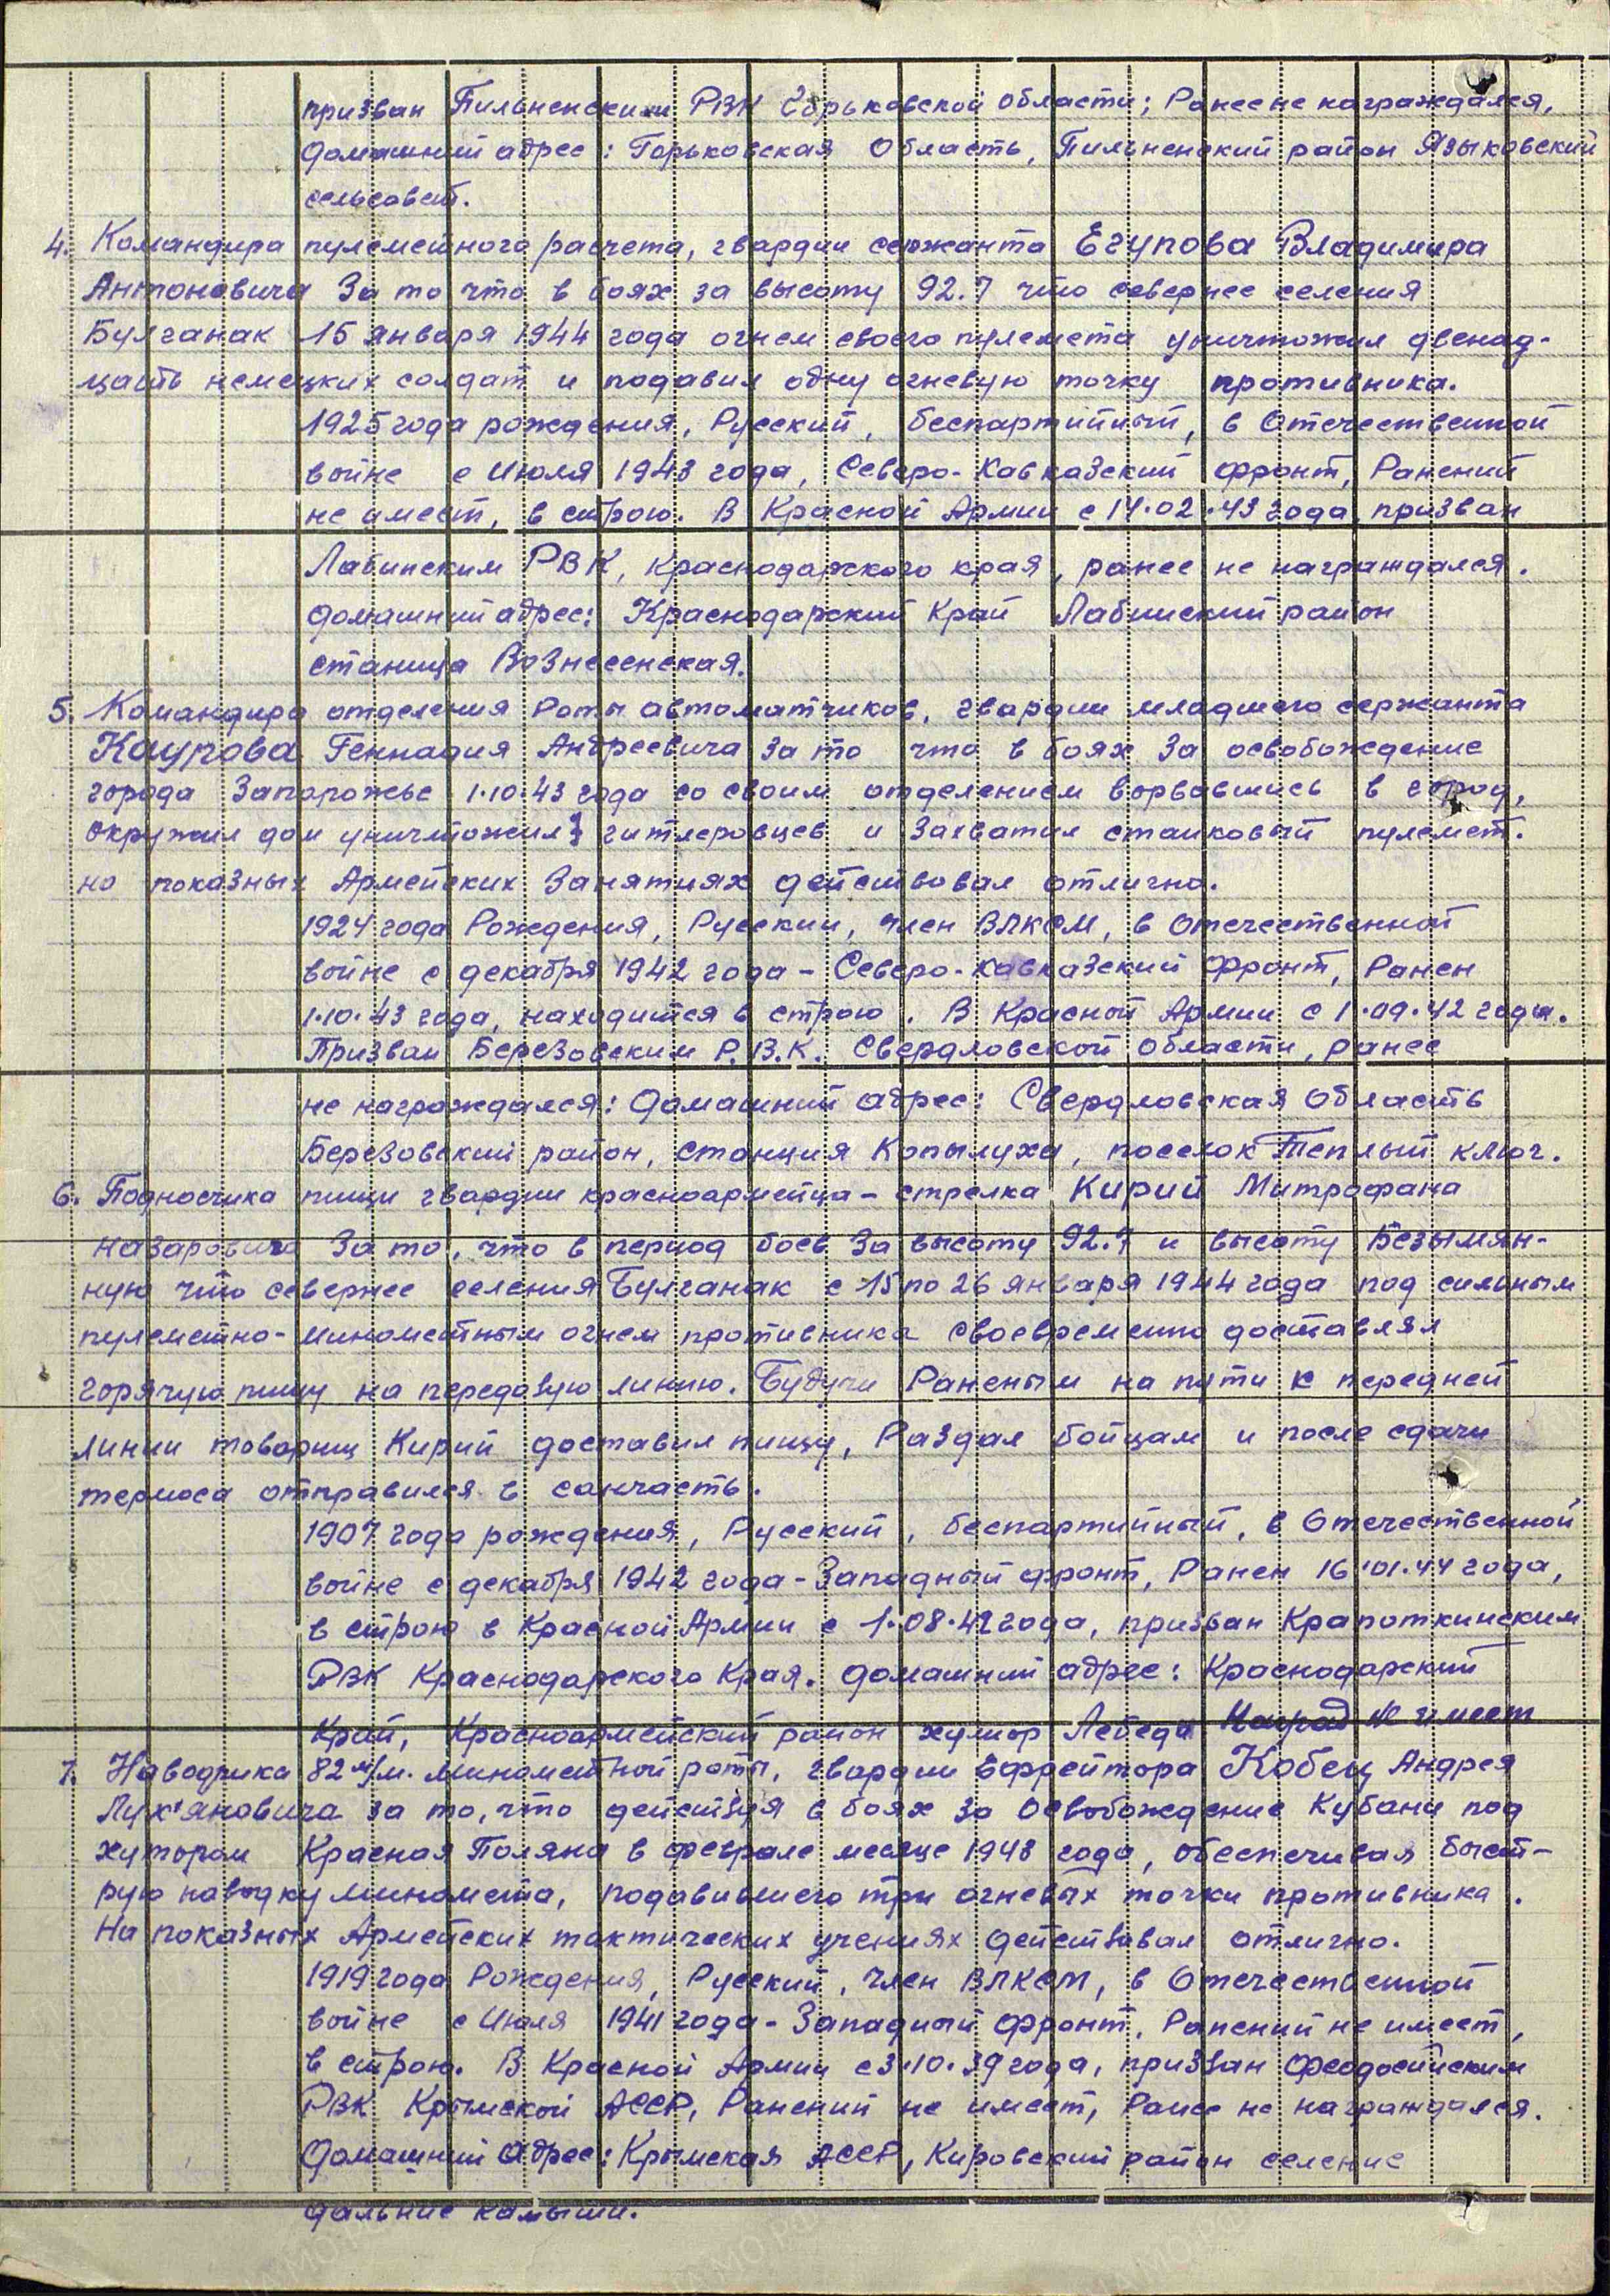 призван Пильненским РВК Горьковской области; Ранее не награждался,
домашний адрес: Горьковская Область, Пильненский район Языковский
сельсовет.
4. Командира пулеметного расчета, гвардии сержанта Егупова Владимира
Антоновича За то что в боях за высоту 92.7 что севернее селения
Булганак 15 января 1944 года огнем своего пулемета уничтожил двенад-
цать немецких солдат и подавил одну огневую точку противника.
1925 года рождения, Русский, беспартийный, в Отечественной
войне с Июля 1943 года, Северо-Кавказский фронт, Ранений
не имеет, в строю. В Красной Армии с 14.02.43 года призван
Лабинским РВК, Краснодарского края, ранее не награждался.
домашний адрес: Краснодарский Край Лабинский район
станица Вознесенская.
5. Командира отделения Роты автоматчиков, гвардии младшего сержанта
Каурова Геннадия Андреевича за то что в боях за освобождение
города Запорожье 1.10.43 года со своим отделением ворвавшись в город,
окружил дом уничтожил гитлеровцев и захватил станковый пулемет.
но показных Армейских Занятиях действовал отлично.
1924 года Рождения, Русский, член ВЛКСМ, в Отечественной
войне с декабря 1942 года - Северо-Кавказский Фронт, Ранен
1.10.43 года, находится в строю. В Красной Армии с 1.09.42 года.
Призван Березовским Р.В.К. Свердловской Области, ранее
не награждался: Домашний адрес: Свердловская Область
Березовский район, станция Копылуха, поселок Теплый ключ.
6. Подносчика пищи гвардии красноармейца - стрелка Кирий Митрофана
Назаровича За то, что в период боев За высоту 92.7 и высоту Безымян-
ную что севернее селения Булганак с 15 по 26 января 1944 года под сильным
пулеметно-минометным огнем противника своевременно доставлял
горячую пищу на передовую линию. Будучи Раненым на пути к передней
линии товарищ Кирий доставил пищу, Раздал бойцам и после сдачи
термоса отправился в санчасть.
1907 года рождения, Русский, беспартийный, в Отечественной
войне с декабря 1942 года - Западный фронт, Ранен 16.01.44 года,
в строю в Красной Армии с 1.08.42 года, призван Крапоткинским
РВК Краснодарского Края. домашний адрес: Краснодарский
Край, Красноармейский район хутор Лебеди Наград не имеет
7. Наводчика 82 м/м. минометной роты, гвардии Ефрейтора Кобец Андрея
Лук'яновича за то, что действуя в боях за Освобождение Кубани под
хутором Красная Поляна в феврале месяце 1943 года, обеспечивая быст-
рую наводку миномета, подавившего три огневых точки противника.
На показных Армейских тактических учениях действовал отлично.
1919 года Рождения, Русский, член ВЛКСМ, в Отечественной
войне с Июля 1941 года - Западный фронт, Ранений не имеет,
в строю. В Красной Армии с 3.10.39 года, призван Феодосийским
РВК Крымской АССР, Ранений не имеет, Ранее не награждался.
Домашний Адрес: Крымская АССР, Кировский район селение
дальние камыши.